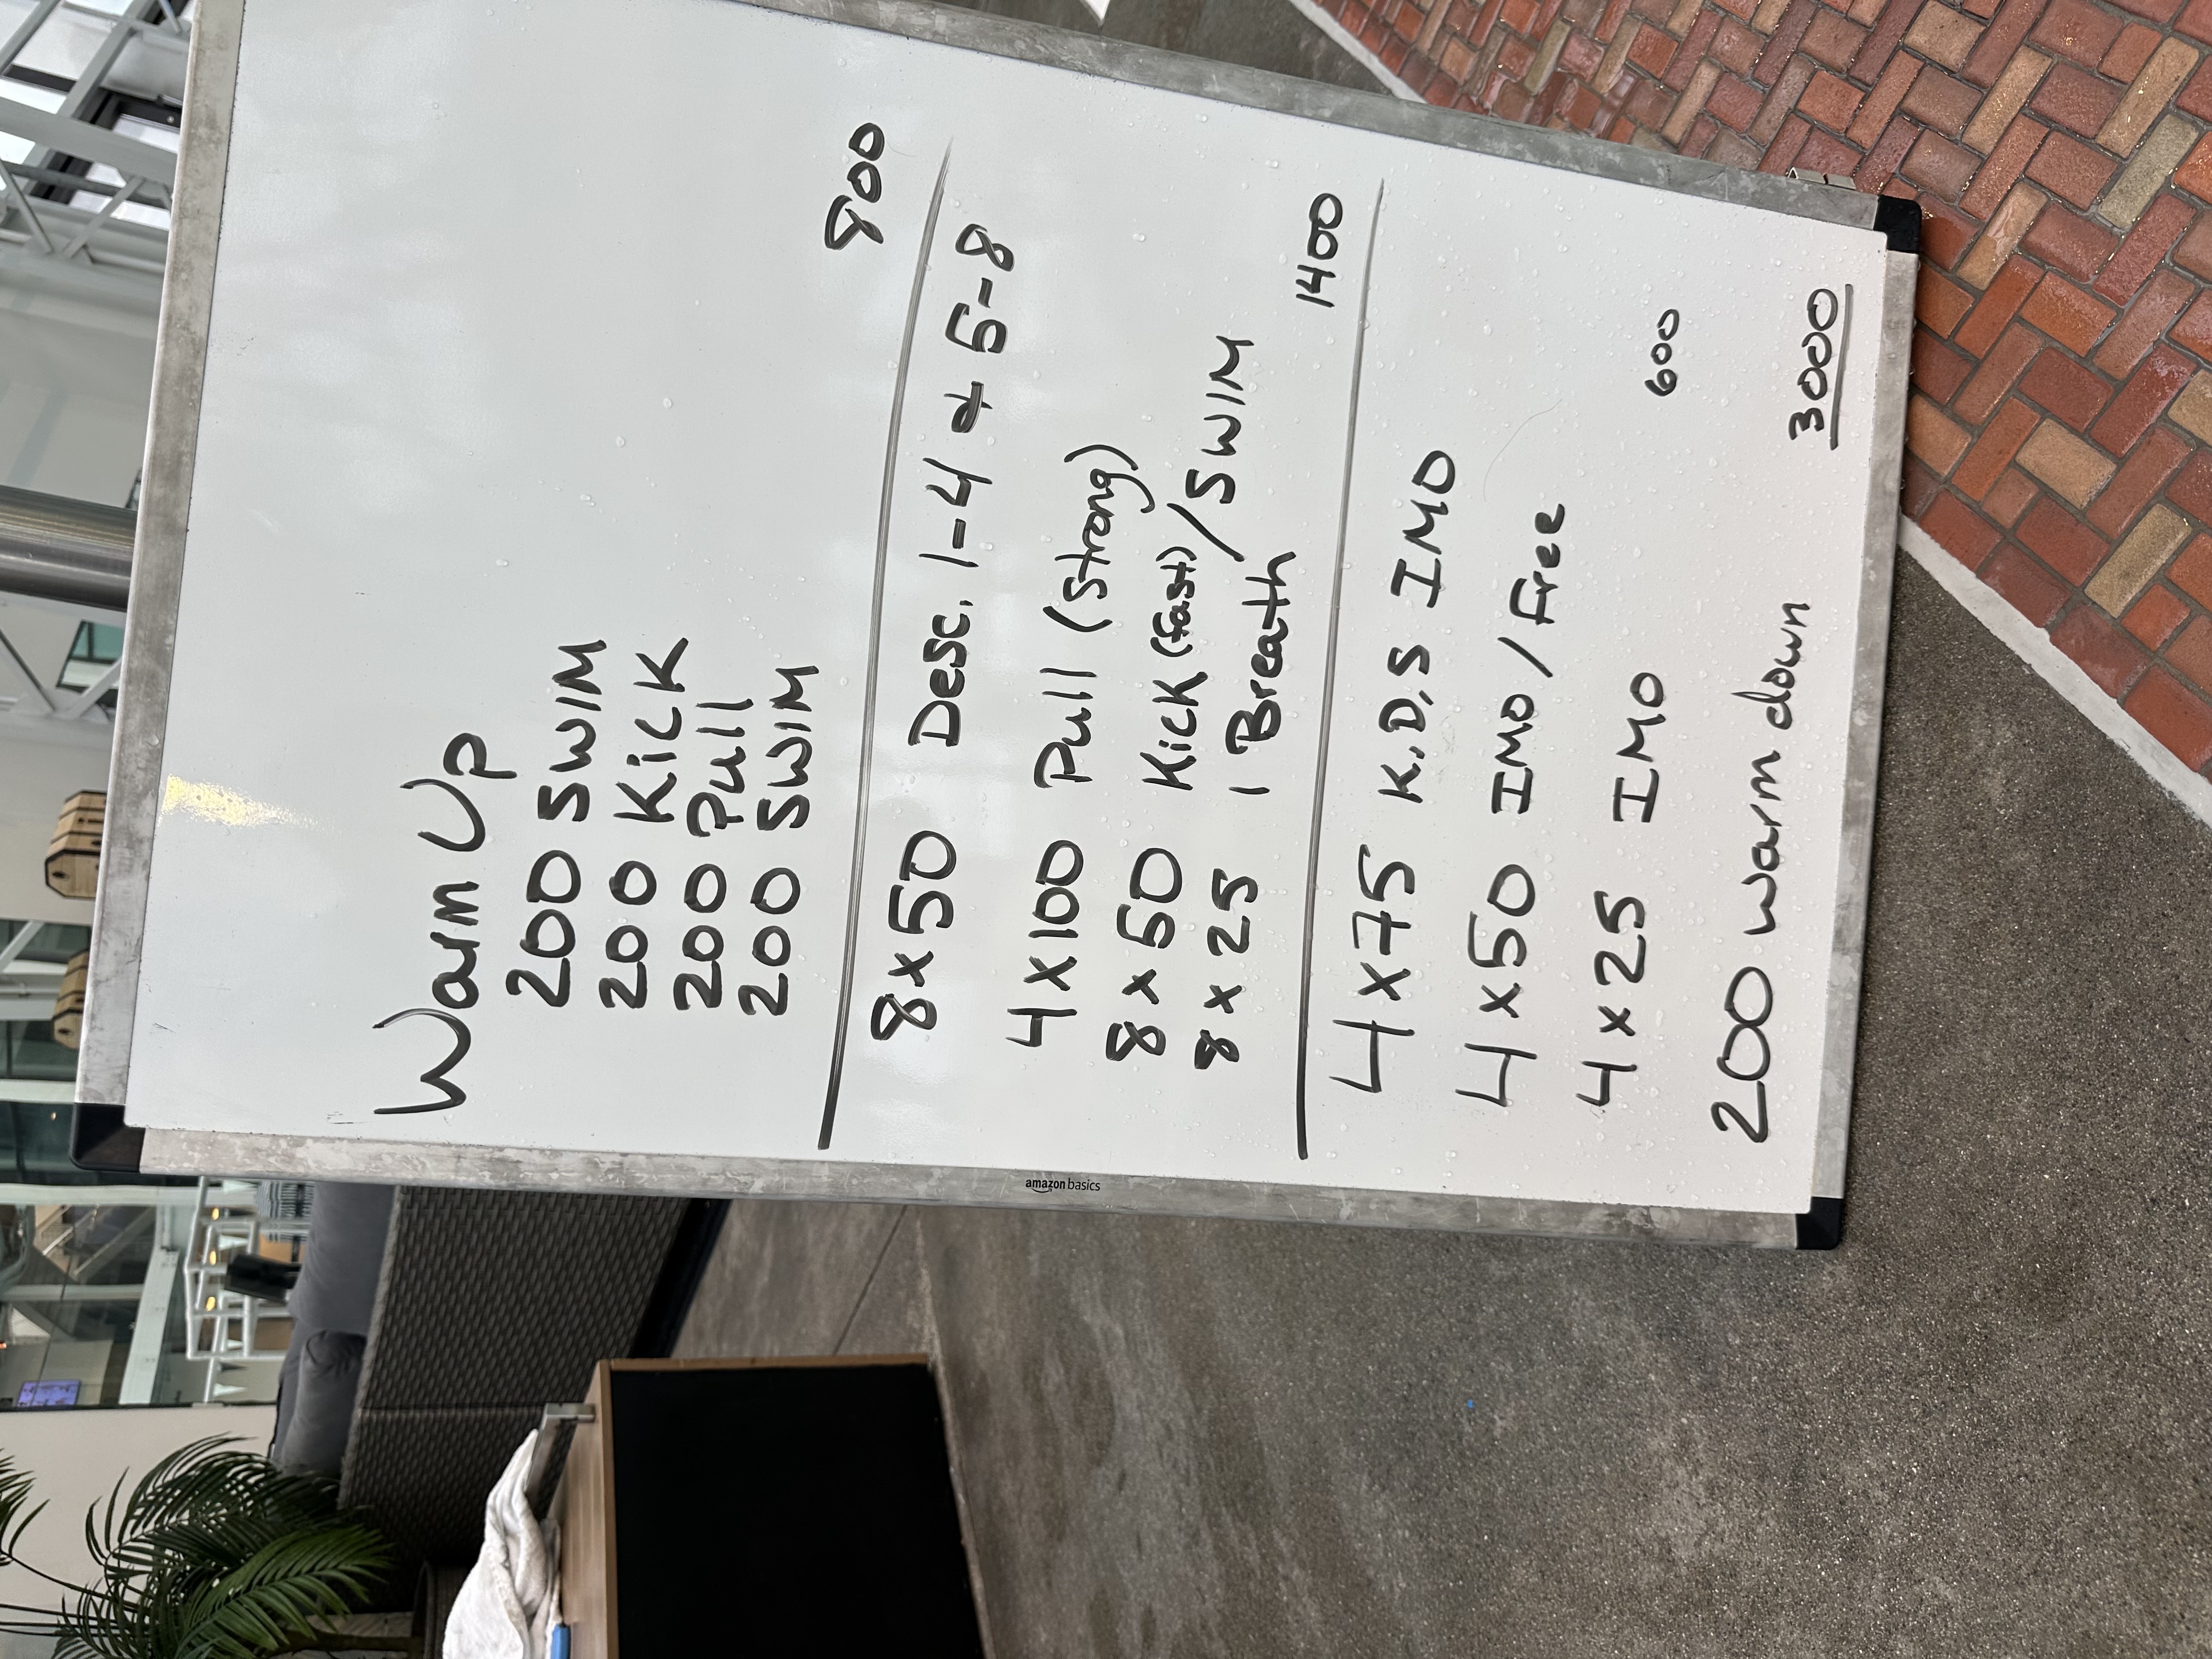 Warm Up
200 SWIM
200 Kick
200 Pull
200 SWIM
800
8x50 Desc. 1-4 & 5-8
4x100 Pull (strong)
8x50 Kick (fast)/SWIM
8x25 1 Breath
1400
4x75 K.D.S IMO
4x50 IMO/Free
4x25 IMO
600
200 warm down
3000
amazon basics